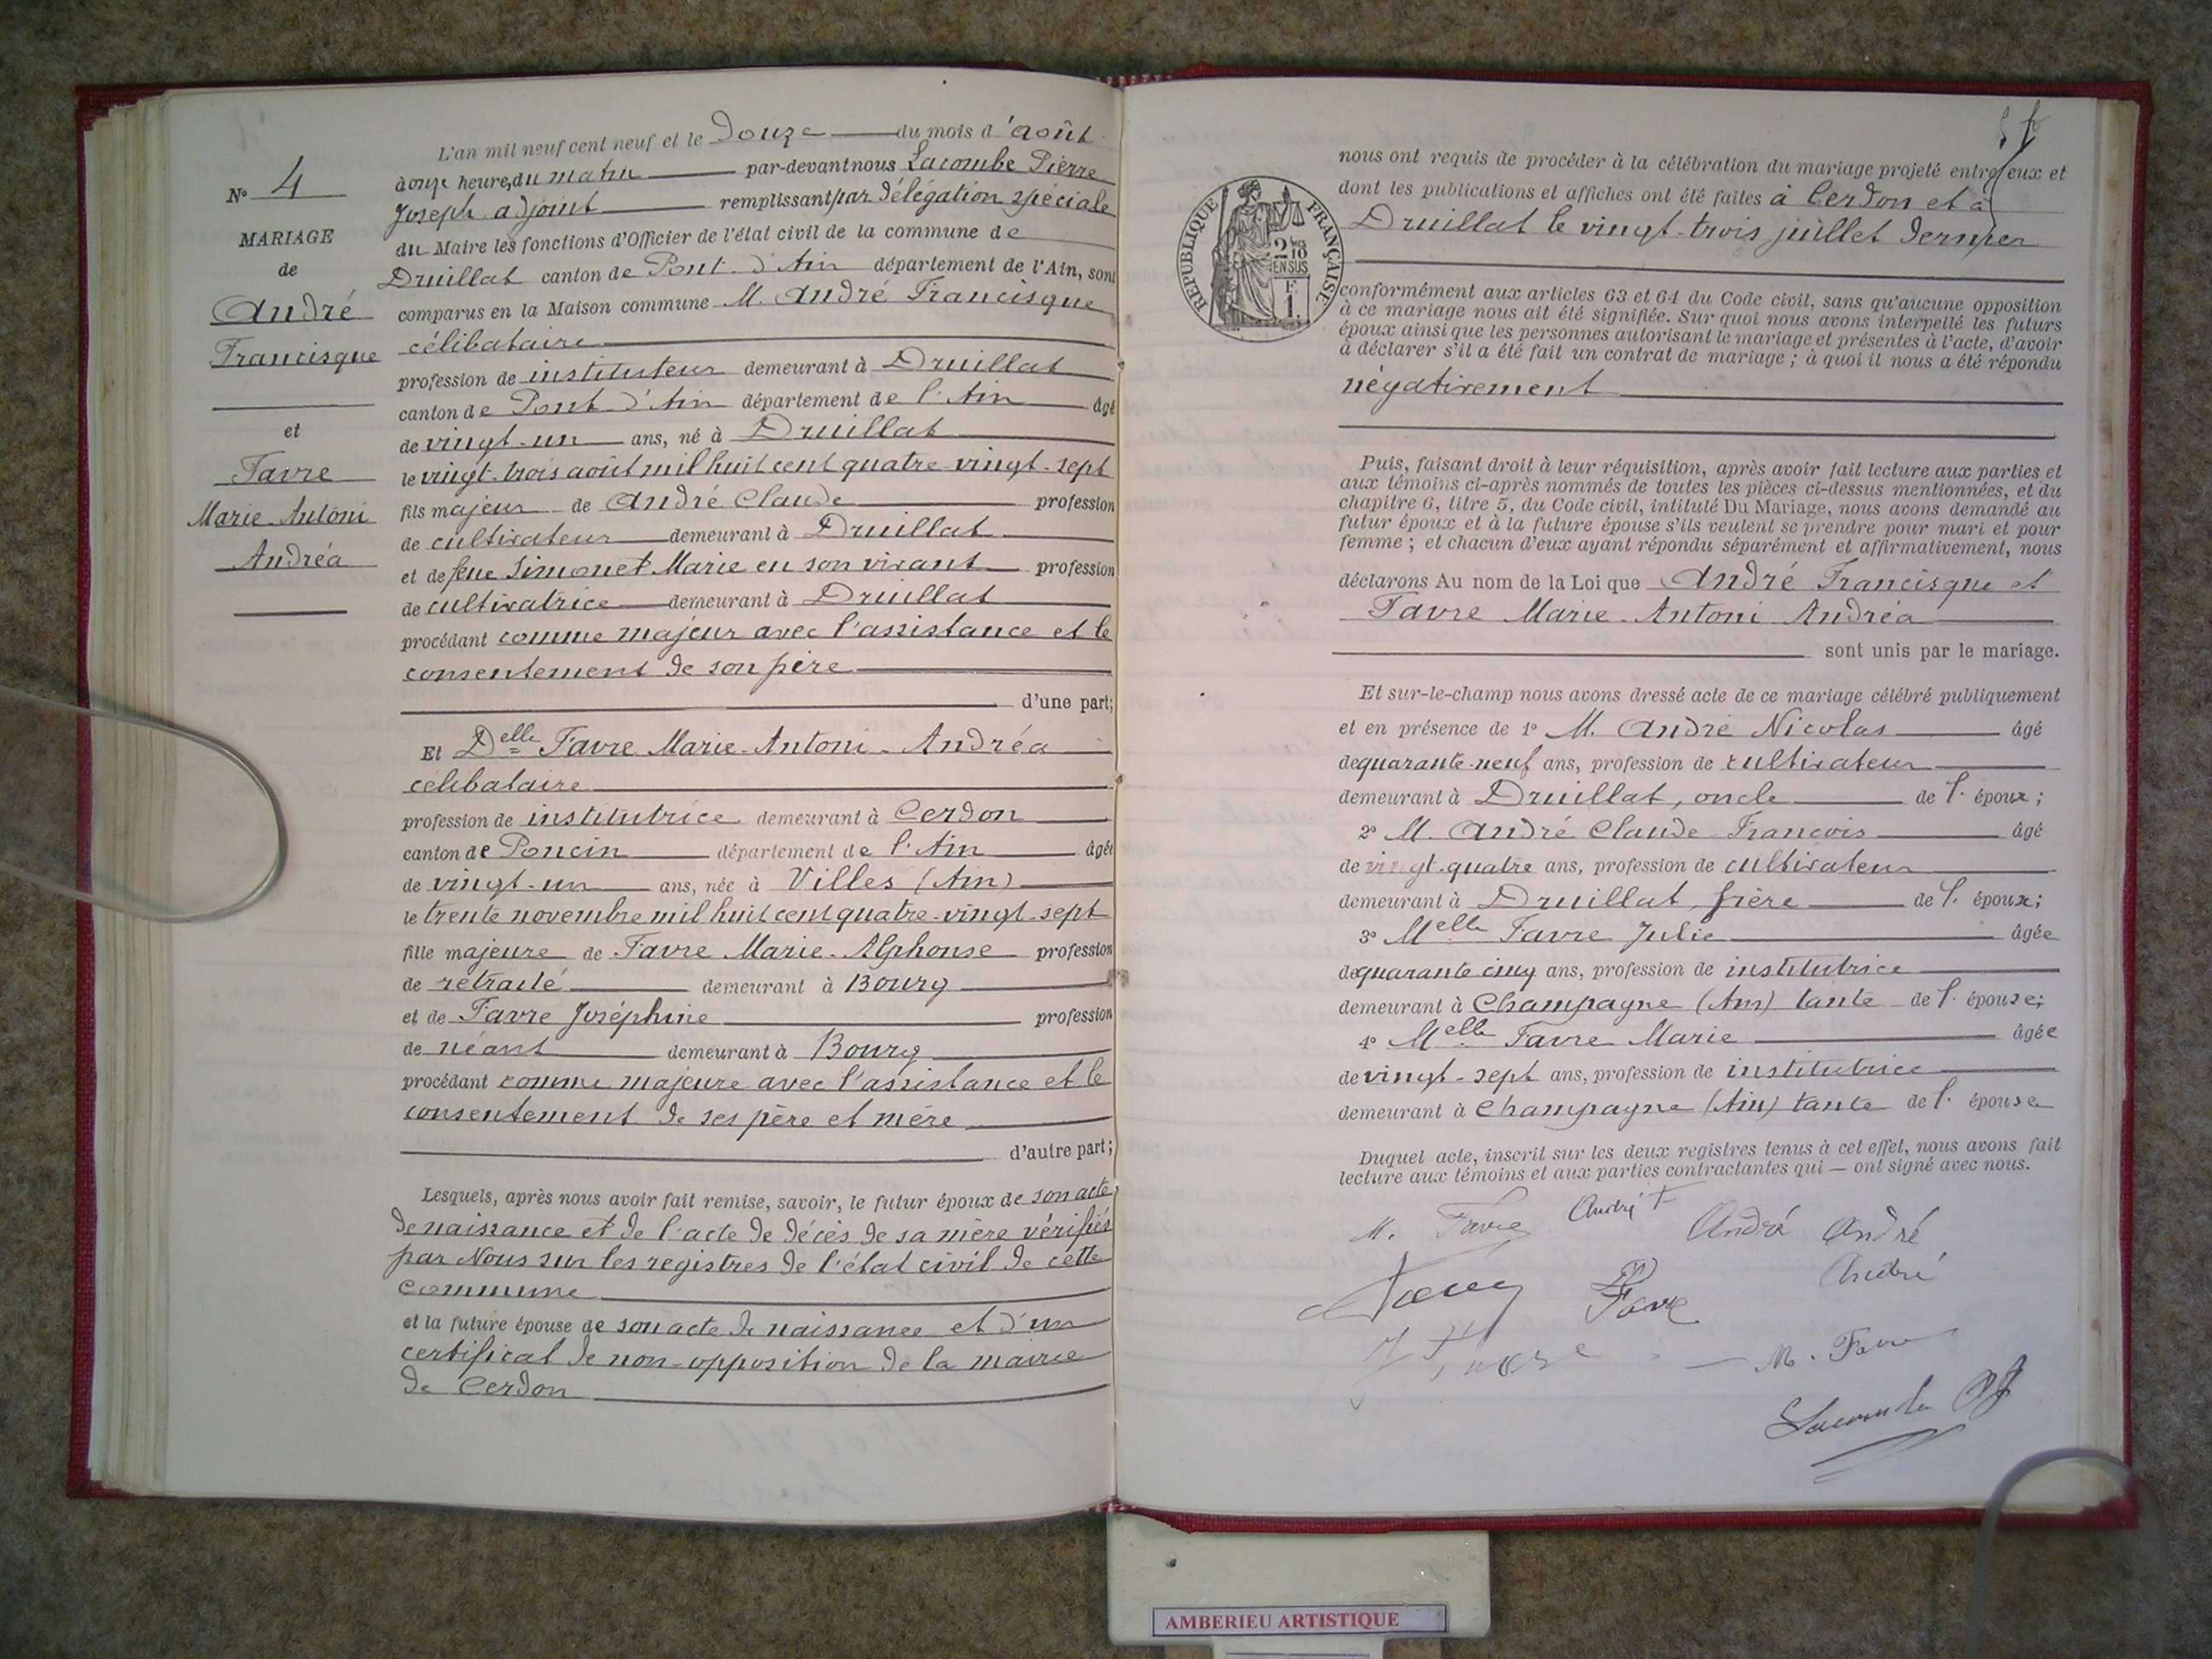 L'an mil neuf cent neuf et le Douze du mois d'août
N° 4
à onze heures du matin par-devant nous Lacombe Pierre
Joseph adjoint remplissant par délégation spéciale
MARIAGE
du Maire les fonctions d'Officier de l'état civil de la commune de
de
Druillat canton de Pont d'Ain département de l'Ain, sont
André
comparus en la Maison commune M. André Francisque
Francisque
célibataire
profession de instituteur demeurant à Druillat
canton de Pont d'Ain département de l'Ain âgé
et
de vingt-un ans, né à Druillat
Favre
le vingt-trois août mil huit cent quatre-vingt-sept
Marie-Antoni
fils majeur de André Claude profession
de cultivateur demeurant à Druillat
Andréa
et de feue Simonet Marie en son vivant profession
de cultivatrice demeurant à Druillat
procédant comme majeur avec l'assistance et le
consentement de son père
d'une part;
Et Delle Favre Marie-Antoni-Andréa
célibataire
profession de institutrice demeurant à Cerdon
canton de Poncin département de l'Ain âgée
de vingt-un ans, née à Villes (Ain)
le trente novembre mil huit cent quatre-vingt-sept
fille majeure de Favre Marie-Alphonse profession
de retraité demeurant à Bourg
et de Favre Joséphine profession
de néant demeurant à Bourg
procédant comme majeure avec l'assistance et le
consentement de ses père et mère
d'autre part;
Lesquels, après nous avoir fait remise, savoir, le futur époux de son acte
de naissance et de l'acte de décès de sa mère vérifiés
par Nous sur les registres de l'état civil de cette
commune
et la future épouse de son acte de naissance et d'un
certificat de non-opposition de la mairie
de Cerdon
nous ont requis de procéder à la célébration du mariage projeté entre eux et
dont les publications et affiches ont été faites à Cerdon et à
Druillat le vingt-trois juillet dernier
RÉPUBLIQUE FRANÇAISE
2/10 EN SUS
F.
1.
conformément aux articles 63 et 64 du Code civil, sans qu'aucune opposition
à ce mariage nous ait été signifiée. Sur quoi nous avons interpellé les futurs
époux ainsi que les personnes autorisant le mariage et présentes à l'acte, d'avoir
à déclarer s'il a été fait un contrat de mariage ; à quoi il nous a été répondu
négativement
Puis, faisant droit à leur réquisition, après avoir fait lecture aux parties et
aux témoins ci-après nommés de toutes les pièces ci-dessus mentionnées, et du
chapitre 6, titre 5, du Code civil, intitulé Du Mariage, nous avons demandé au
futur époux et à la future épouse s'ils veulent se prendre pour mari et pour
femme ; et chacun d'eux ayant répondu séparément et affirmativement, nous
déclarons Au nom de la Loi que André Francisque et
Favre Marie-Antoni Andréa
sont unis par le mariage.
Et sur-le-champ nous avons dressé acte de ce mariage célébré publiquement
et en présence de 1° M. André Nicolas âgé
de quarante-neuf ans, profession de cultivateur
demeurant à Druillat, oncle de l' époux ;
2° M. André Claude François âgé
de vingt-quatre ans, profession de cultivateur
demeurant à Druillat, frère de l' époux;
3° Melle Favre Julie âgée
de quarante cinq ans, profession de institutrice
demeurant à Champagne (Ain) tante de l' épouse;
4° Melle Favre Marie âgée
de vingt-sept ans, profession de institutrice
demeurant à Champagne (Ain) tante de l' épouse
Duquel acte, inscrit sur les deux registres tenus à cet effet, nous avons fait
lecture aux témoins et aux parties contractantes qui — ont signé avec nous.
M. Favre André F André André
Favre André
M. Favre
Lacombe
AMBERIEU ARTISTIQUE